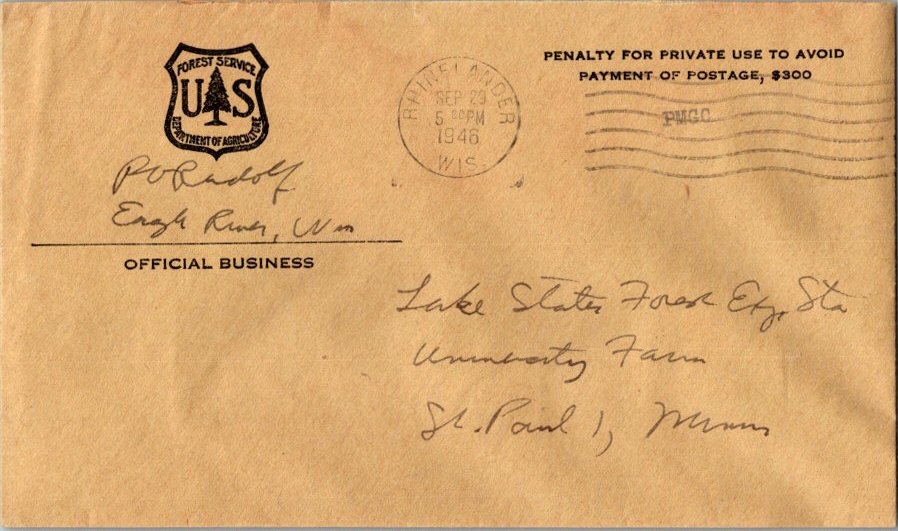 FOREST SERVICE
U S
DEPARTMENT OF AGRICULTURE
P O Rudolf
Eagle River, Wis
OFFICIAL BUSINESS
RHINELANDER
SEP 29
5 PM
1946
WIS.
PENALTY FOR PRIVATE USE TO AVOID
PAYMENT OF POSTAGE, $300
PMGC
Lake States Forest Exp. Sta
University Farm
St. Paul 1, Minn